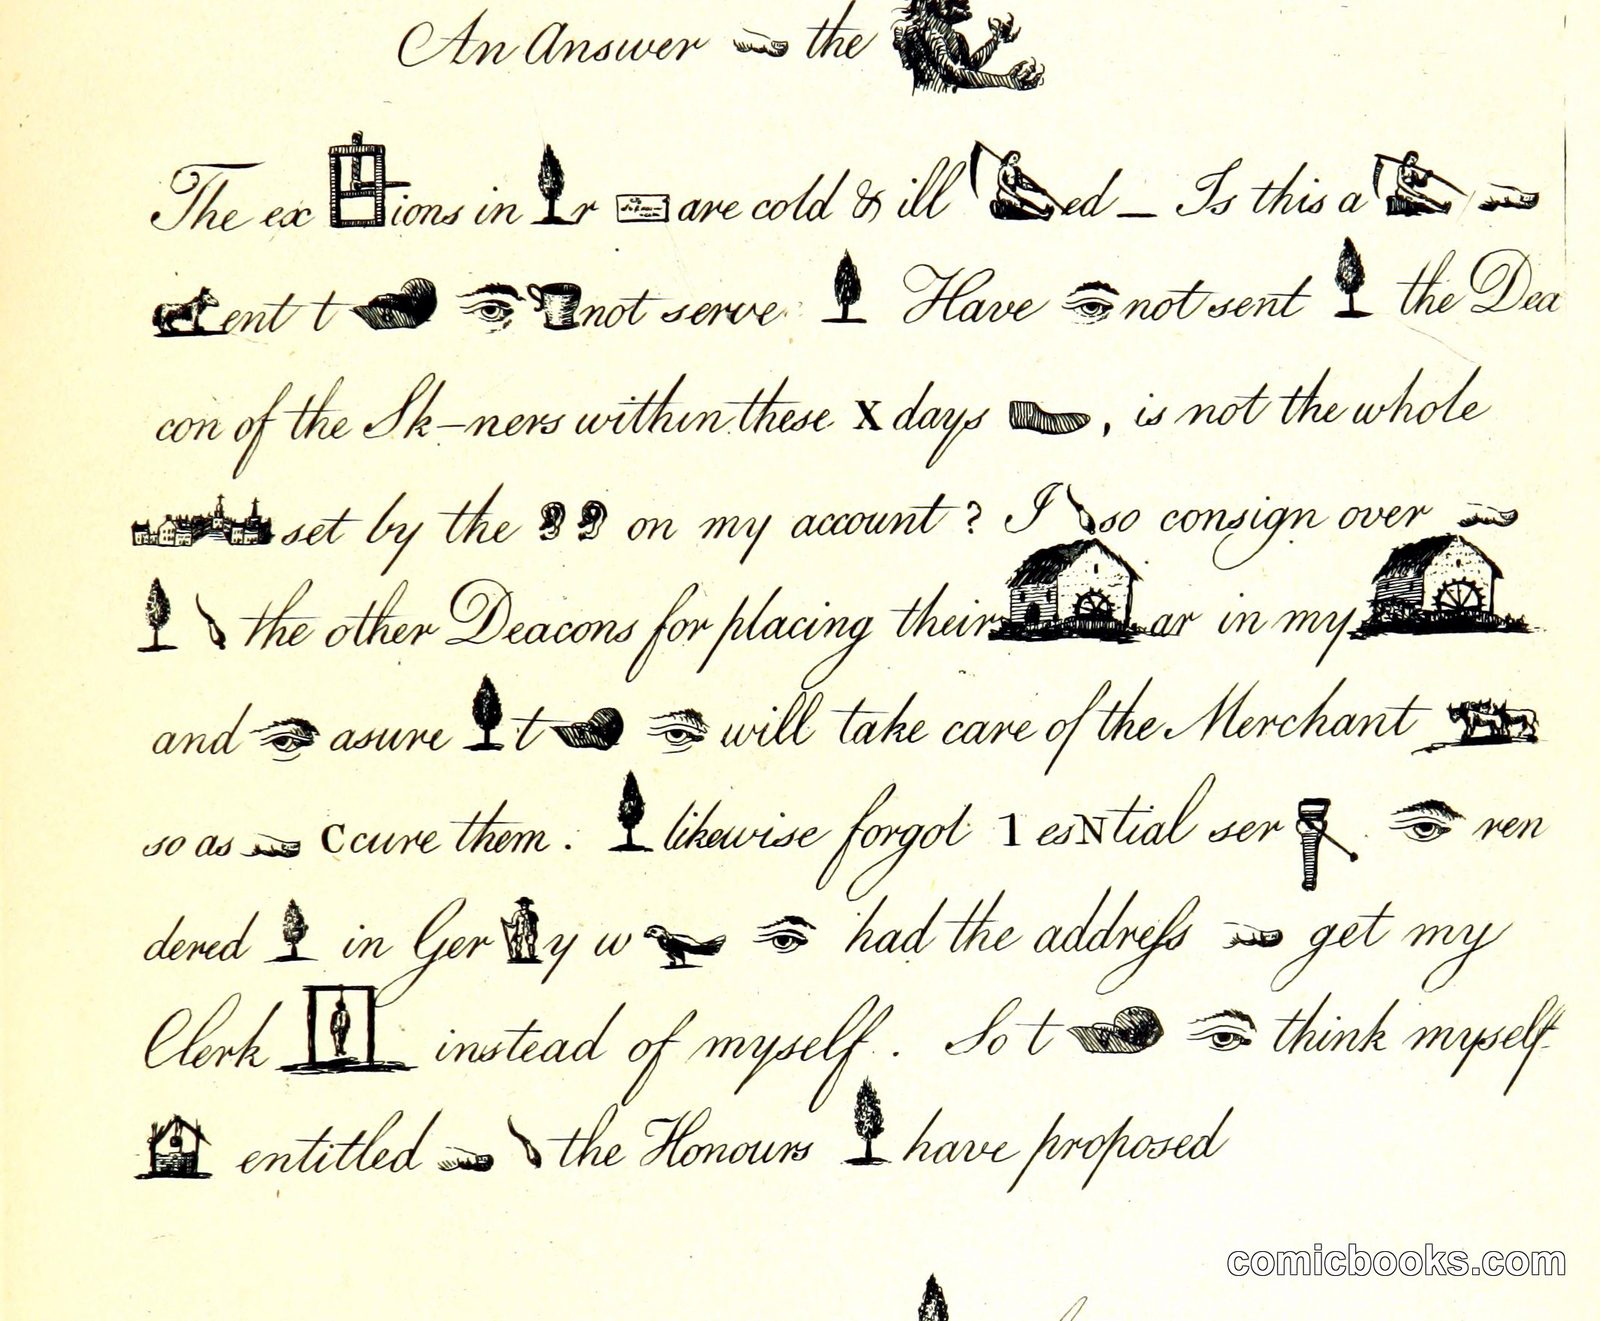 An Answer the
The ex ions in r are cold & ill ed – Is this a
ent t not serve Have not sent the Dea
con of the Sk–ners within these X days , is not the whole
set by the on my account ? I so consign over
the other Deacons for placing their ar in my
and asure t will take care of the Merchant
so as Ccure them . likewise forgot 1 esNtial ser ren
dered in Ger y w had the address get my
Clerk instead of myself . So t think myself
entitled the Honours have proposed
comicbooks.com